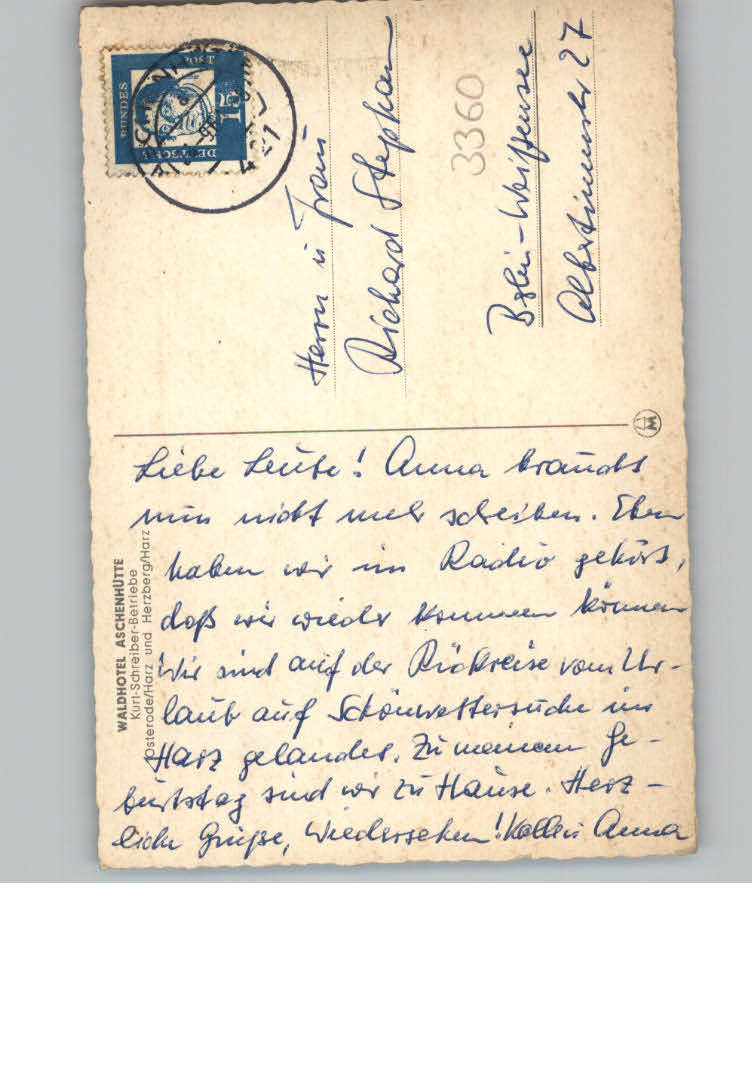 DEUTSCHE
BUNDES
POST
15
3360
Herrn u Frau
Richard Stephan
Berlin-Weißensee
Albertinenstr 27
WALDHOTEL ASCHENHÜTTE
Kurt-Schreiber-Betriebe
Osterode/Harz und Herzberg/Harz
Liebe Leute! Anna braucht
nun nicht mehr schreiben. Eben
haben wir im Radio gehört,
daß wir wieder kommen können
Wir sind auf der Rückreise vom Ur-
laub auf Schönwettersuche im
Harz gelandet. Zu meinem Ge-
burtstag sind wir zu Hause. Herz-
liche Grüße, Wiedersehen! Anna